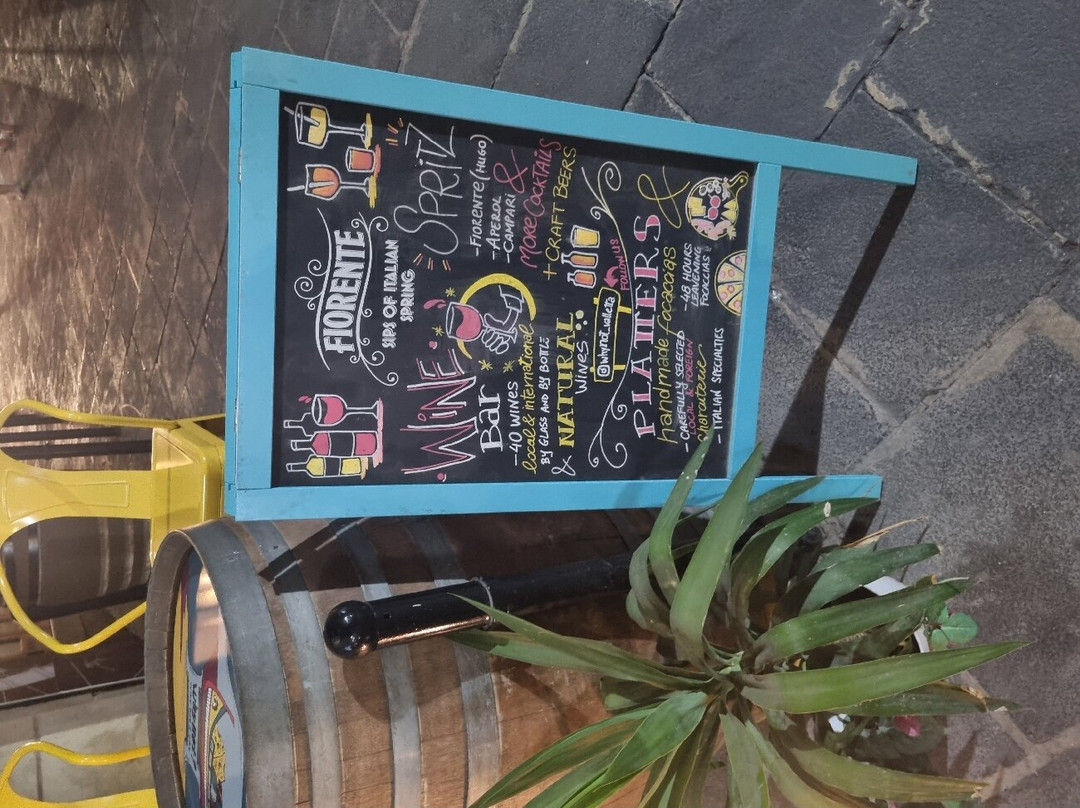 FIORENTE
SIPS OF ITALIAN
SPRING
WINE
Bar
-40 WINES
local & international
BY GLASS AND BY BOTTLE
& NATURAL
WINES...
SPRITZ
-FIORENTE (HUGO)
-APEROL
-CAMPARI &
MORE COCKTAILS
+ CRAFT BEERS
FOLLOW US
@whynot_valletta
PLATTERS &
handmade focaccias
- CAREFULLY SELECTED
LOCAL & FOREIGN
charcuterie
- ITALIAN SPECIALTIES
-48 HOURS
LEAVENING
FOCACCIAS